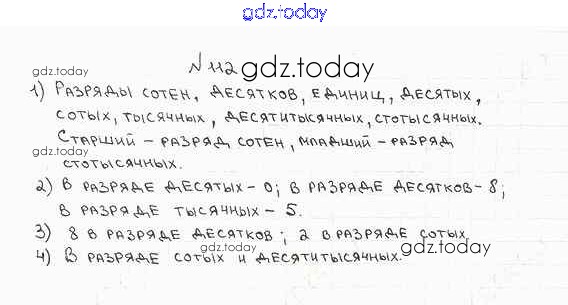 gdz.today
№ 112
gdz.today
gdz.today
1) Разряды сотен, десятков, единиц, десятых,
сотых, тысячных, десятитысячных, стотысячных.
gdz.today
Старший – разряд сотен, младший – разряд
gdz.today
стотысячных.
2) В разряде десятых – 0; в разряде десятков – 8;
в разряде тысячных – 5.
3) 8 в разряде десятков; 2 в разряде сотых
gdz.today
gdz.today
4) В разряде сотых и десятитысячных.